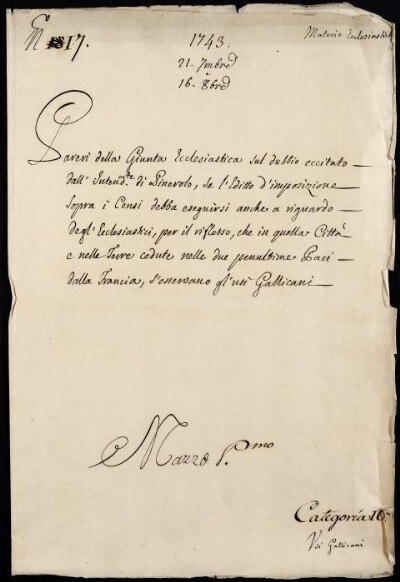 Materie Ecclesiastiche
N 1817.
1743.
21. 7mbre
e
16. 8bre
Pareri della Giunta Ecclesiastica sul dubbio eccitato
dall' Intend.te di Pinerolo, se l'Editto d'imposizione
Sopra i Censi debba eseguirsi anche a riguardo
degl' Ecclesiastici, per il riflesso, che in quella Città
e nelle Terre cedute nelle due penultime Paci
dalla Francia, s'osservano gl'usi Gallicani
Mazzo P.mo
Categoria 16.
Usi Gallicani